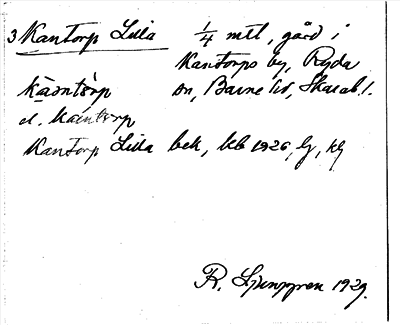 3 Kantorp Lilla 1/4 mtl, gård i
Kantorps by, Ryda
sn, Barne hd, Skarab. l.
el.
Kantorp Lilla bek, kb 1926,
R. Ljunggren 1929.